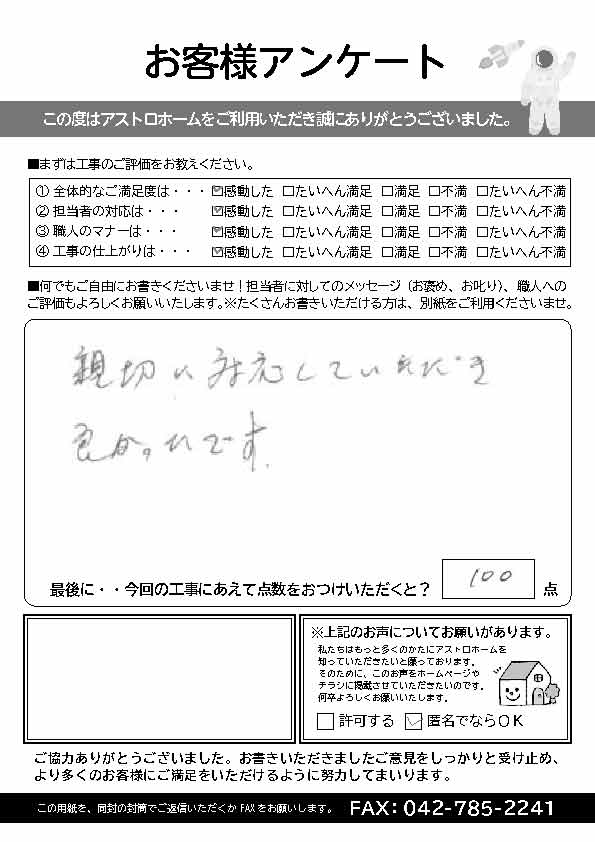 お客様アンケート
この度はアストロホームをご利用いただき誠にありがとうございました。
■まずは工事のご評価をお教えください。
① 全体的なご満足度は・・・ ☑感動した □たいへん満足 □満足 □不満 □たいへん不満
② 担当者の対応は・・・ ☑感動した □たいへん満足 □満足 □不満 □たいへん不満
③ 職人のマナーは・・・ ☑感動した □たいへん満足 □満足 □不満 □たいへん不満
④ 工事の仕上がりは・・・ ☑感動した □たいへん満足 □満足 □不満 □たいへん不満
■何でもご自由にお書きくださいませ！担当者に対してのメッセージ（お褒め、お叱り）、職人への
ご評価もよろしくお願いいたします。※たくさんお書きいただける方は、別紙をご利用くださいませ。
親切に対応していただき
良かったです.
最後に・・今回の工事にあえて点数をおつけいただくと？ 100 点
※上記のお声についてお願いがあります。
私たちはもっと多くのかたにアストロホームを
知っていただきたいと願っております。
そのために、このお声をホームページや
チラシに掲載させていただきたいのです。
何卒よろしくお願いいたします。
□許可する ☑匿名でならＯＫ
ご協力ありがとうございました。お書きいただきましたご意見をしっかりと受け止め、
より多くのお客様にご満足をいただけるように努力してまいります。
この用紙を、同封の封筒でご返信いただくか FAX をお願いします。 FAX: 042-785-2241